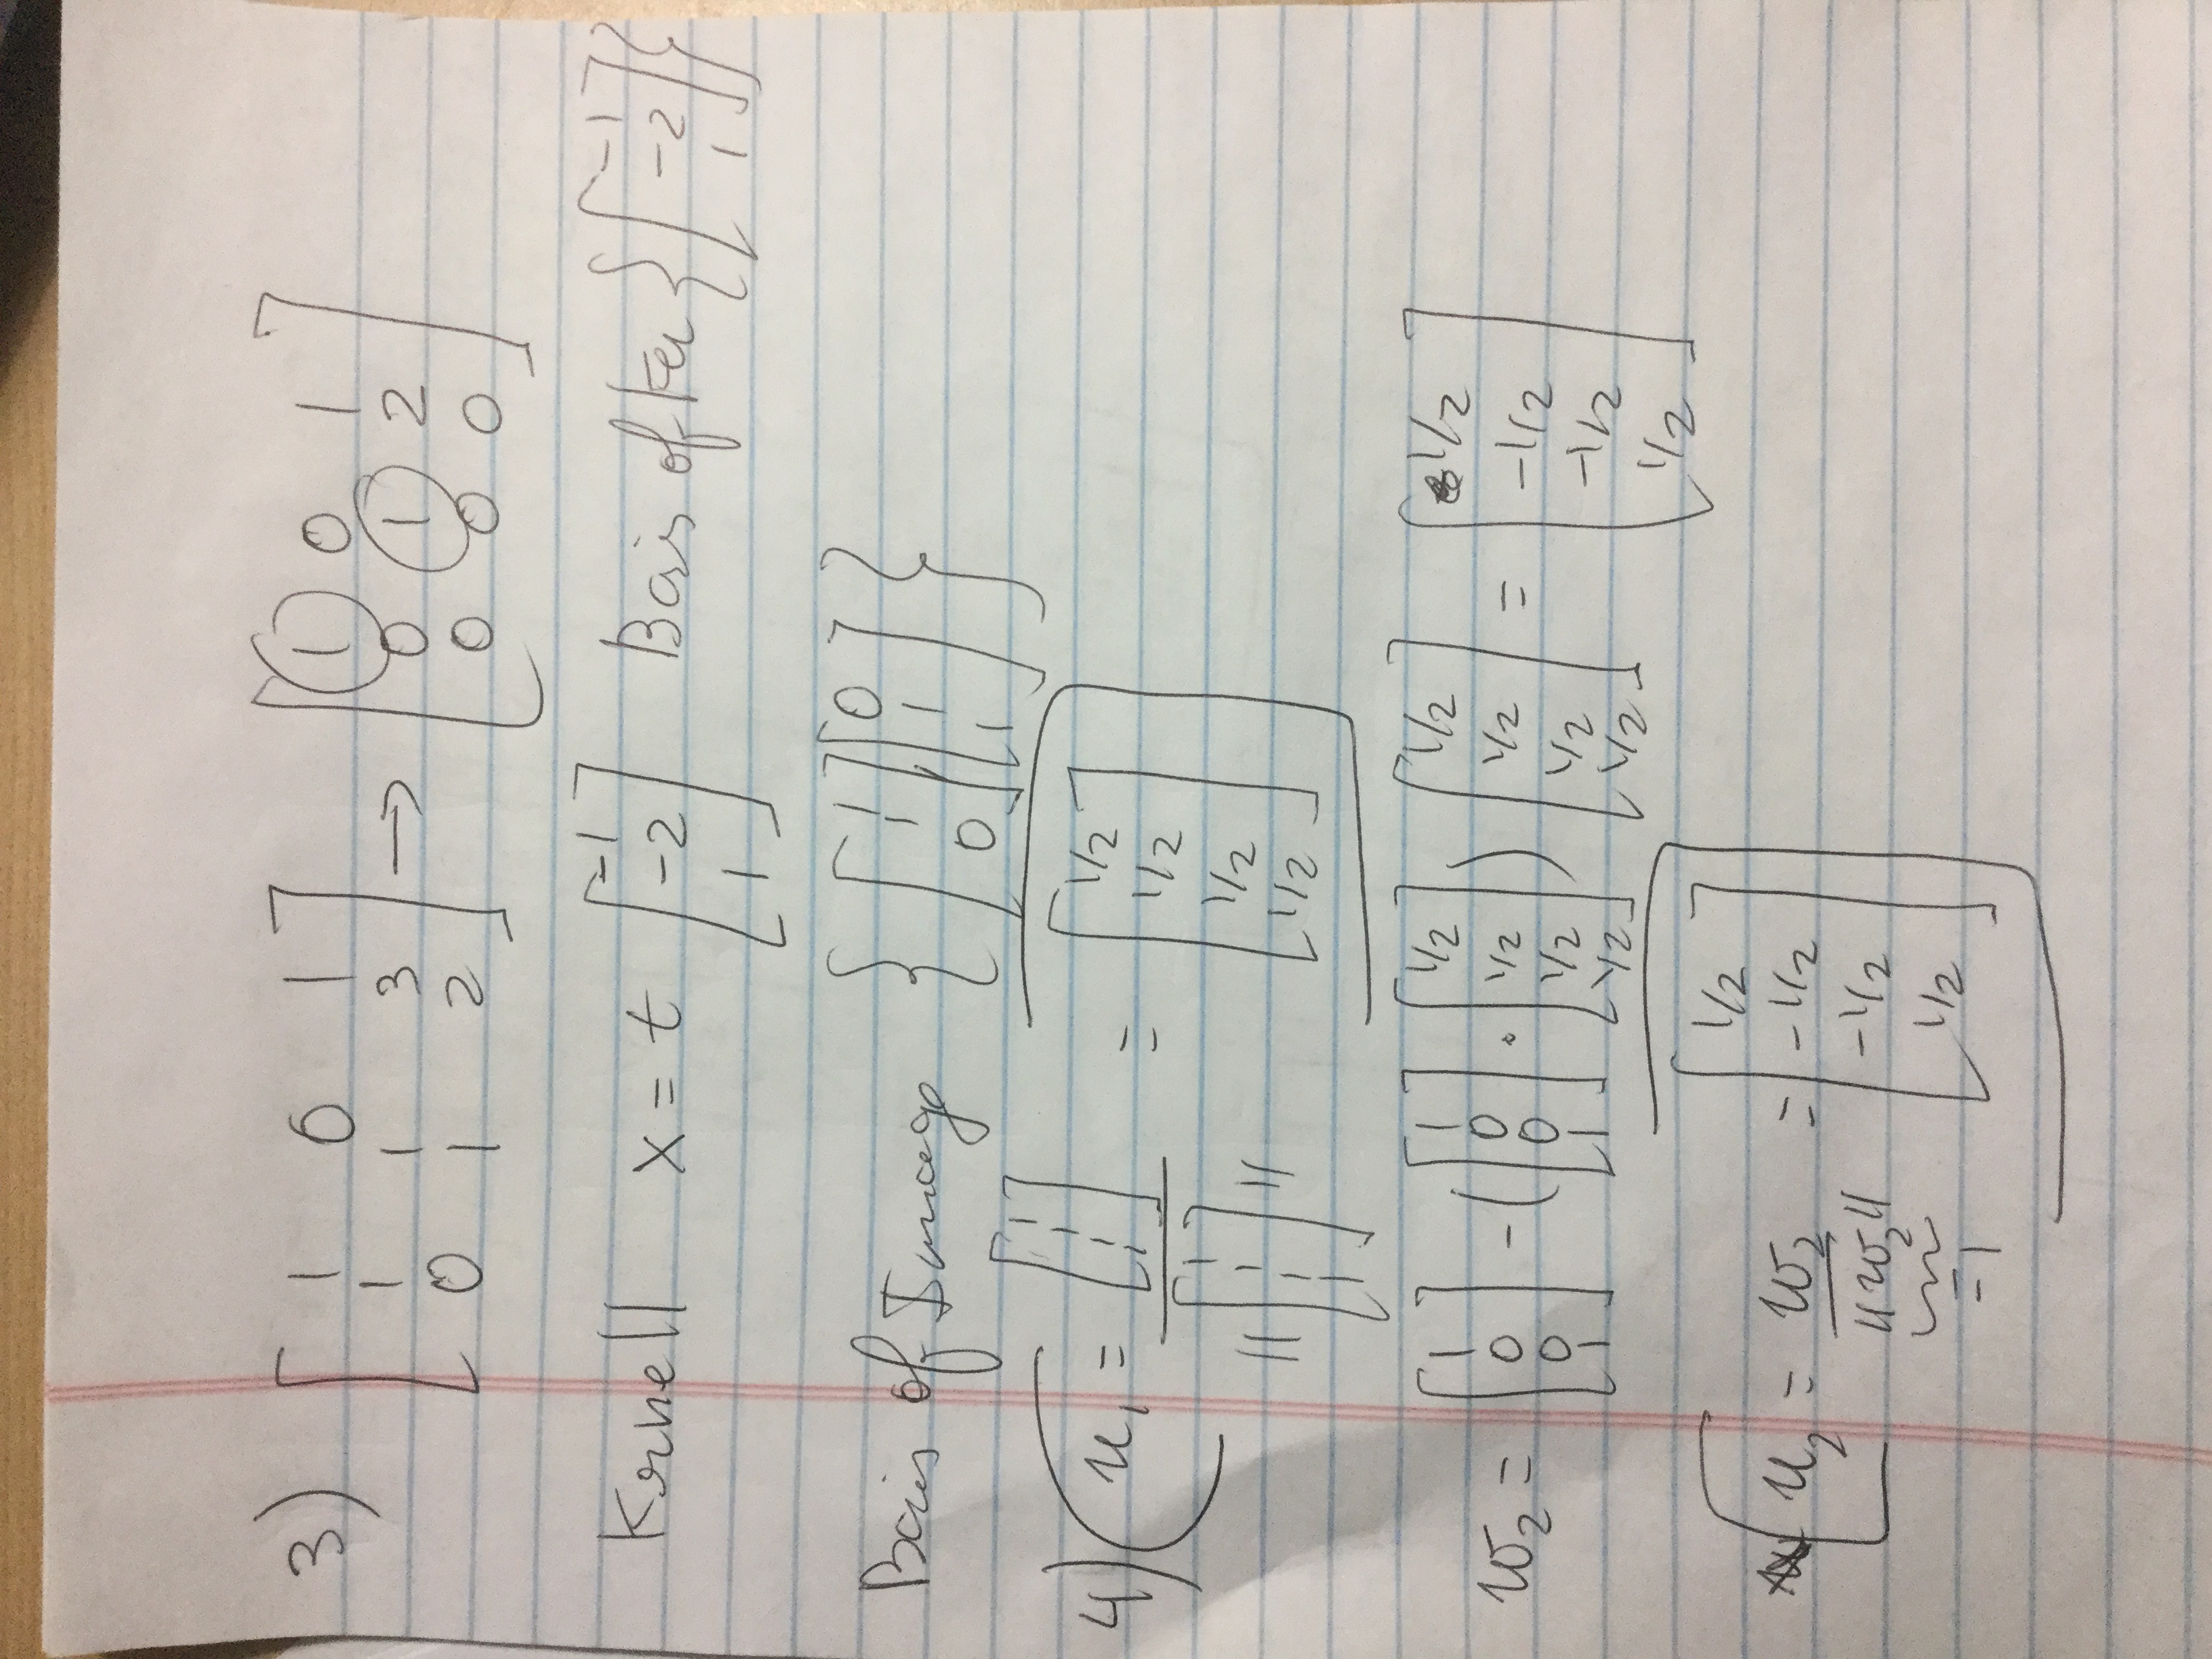 3) [1 0 1; 1 1 3; 0 1 2] → [1 0 1; 0 1 2; 0 0 0]
Kernell x = t [-1; -2; 1] Basis of Ker {[-1; -2; 1]}
Basis of Image {[1; 1; 0] [0; 1; 1]}
4) u₁ = [1; 1; 1; 1] / ||[1; 1; 1; 1]|| = [1/2; 1/2; 1/2; 1/2]
w₂ = [1; 0; 0; 1] - ([1; 0; 0; 1] · [1/2; 1/2; 1/2; 1/2]) [1/2; 1/2; 1/2; 1/2] = [1/2; -1/2; -1/2; 1/2]
u₂ = w₂ / ||w₂|| = [1/2; -1/2; -1/2; 1/2]
= 1